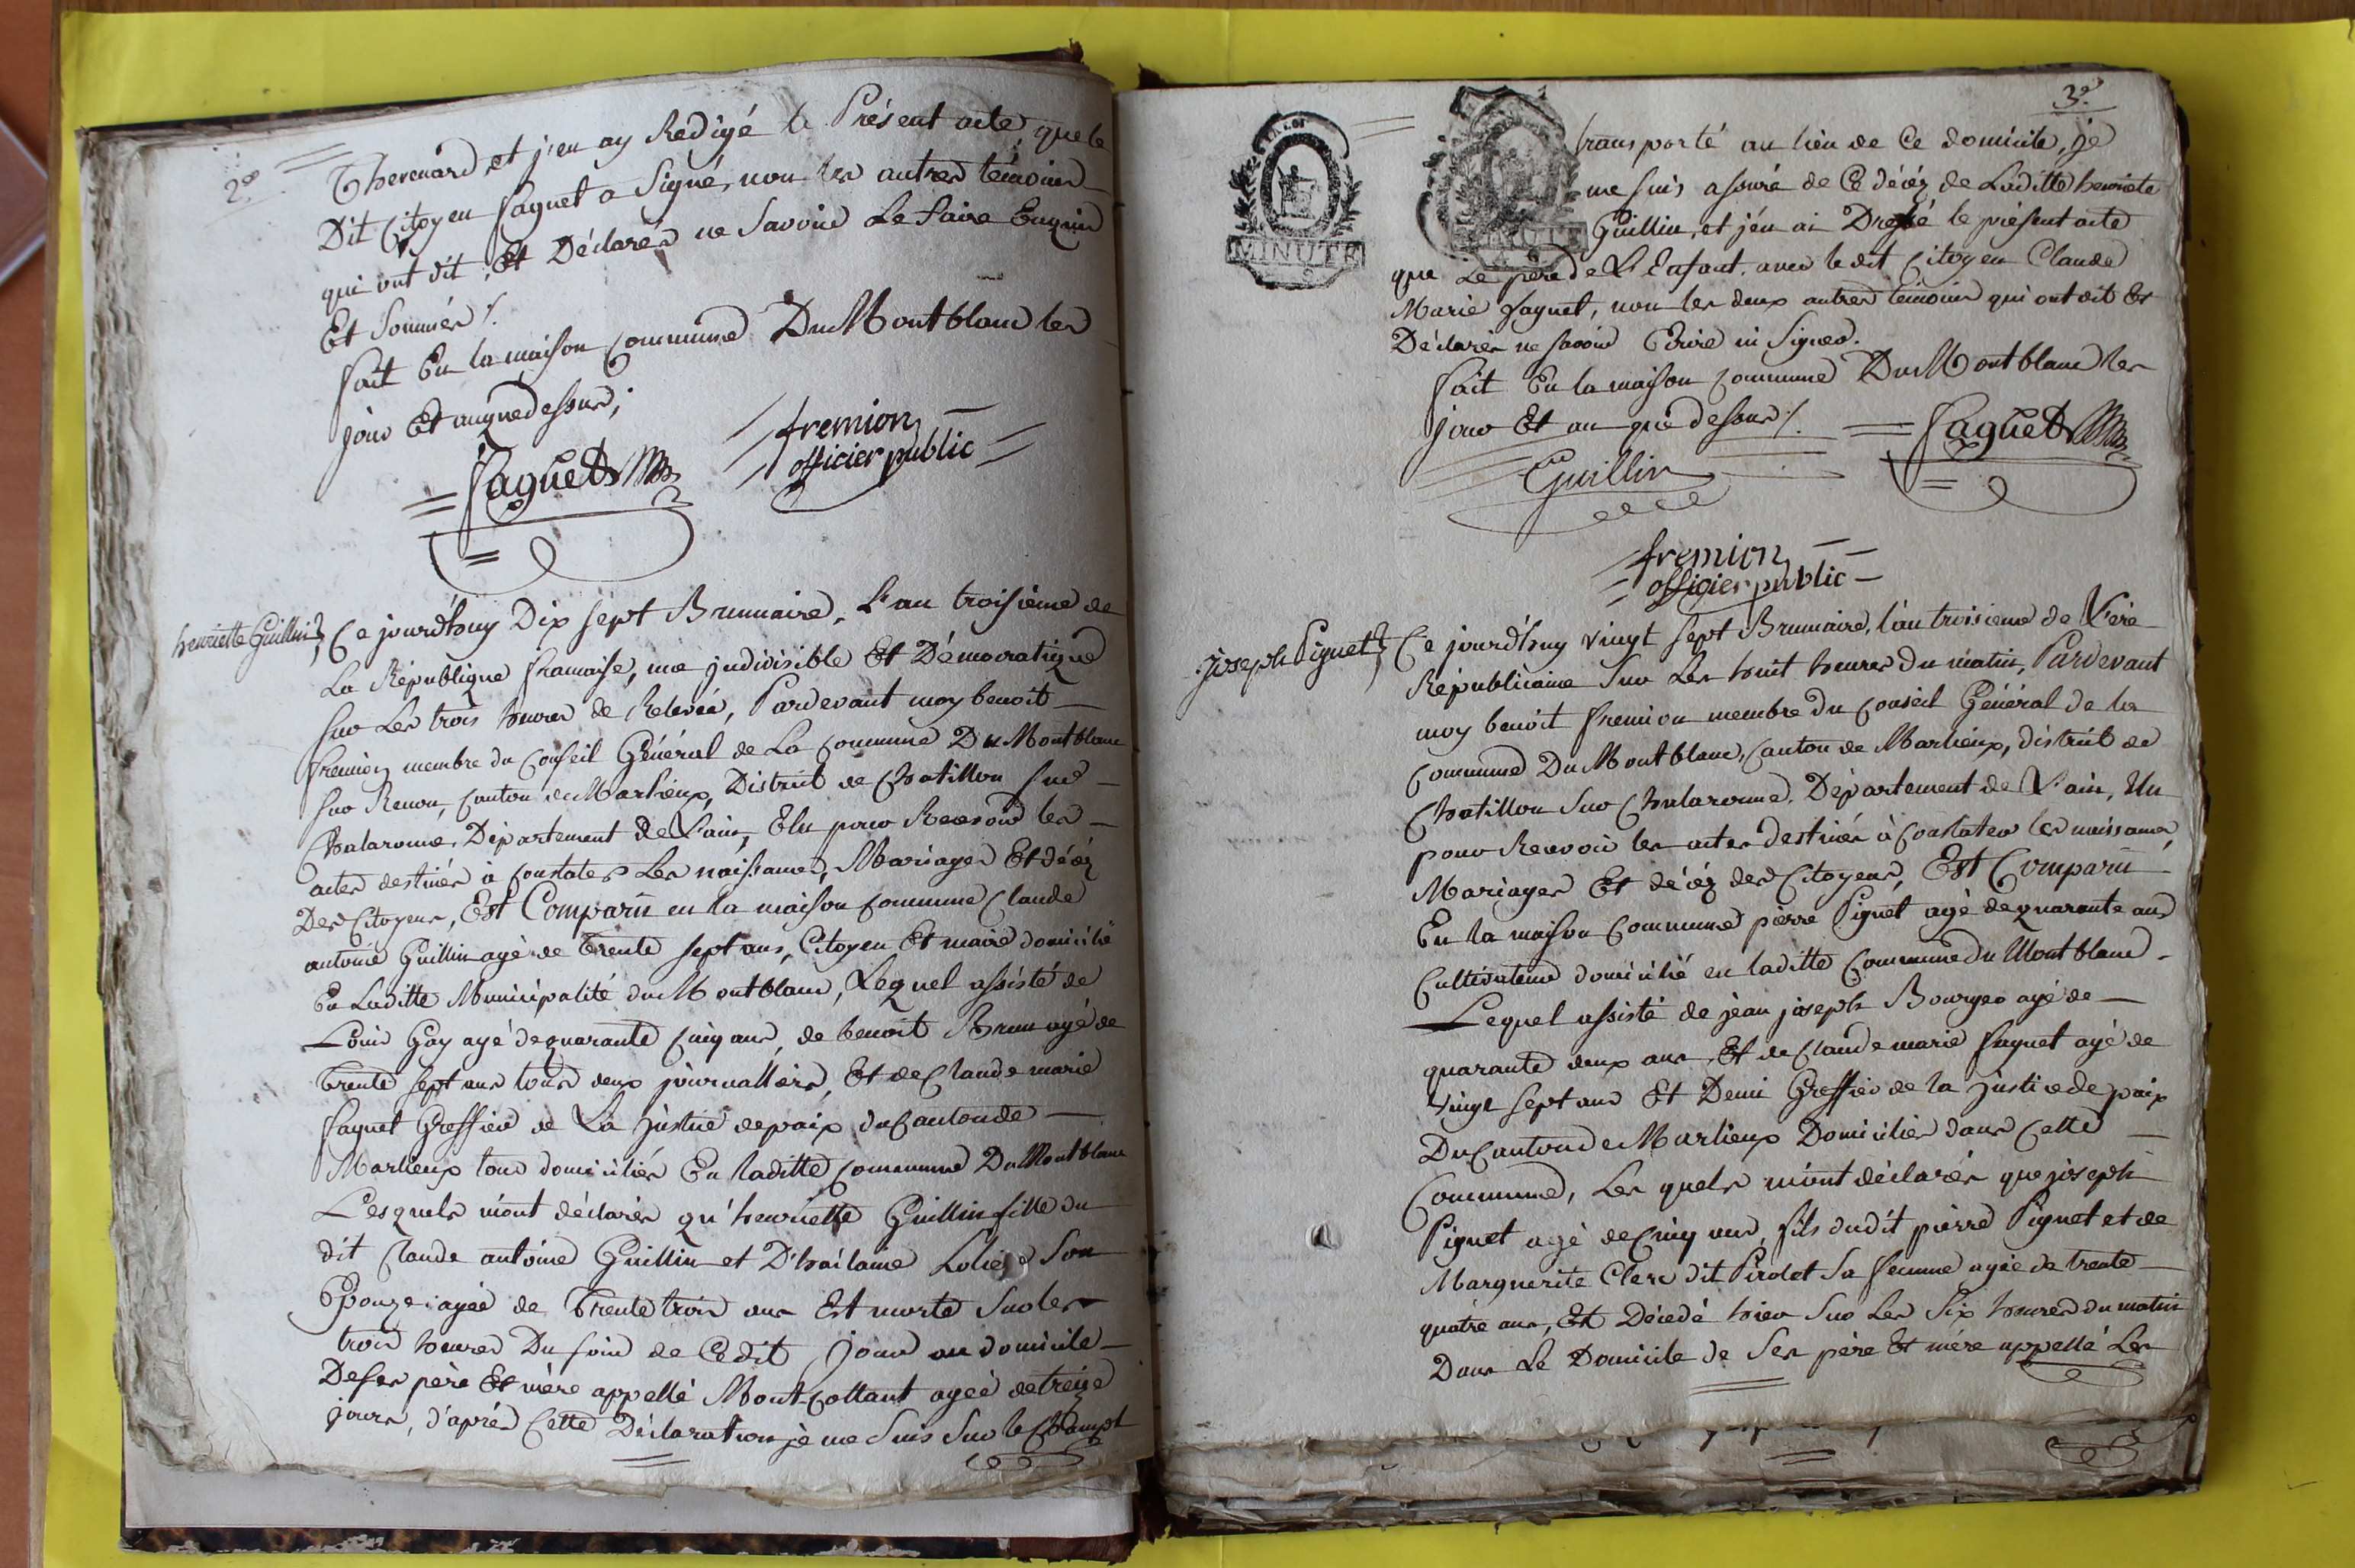 2e
Thevenard, et j'en ay Rédigé le Présent acte, que le
Dit Citoyen Faguet a Signé, non les autres témoins
qui ont dit, Et Déclarés ne Savoir Le faire Enquis
Et Sommés ./.
fait En la maison Commune Du Montblanc les
jour Et an que dessus;
Faguet
fremion
officier public
henriette Guillin
Ce jourd'huy Dix sept Brumaire, L'an troisième de
La République francaise, une indivisible Et Démocratique
Sur Les trois heures de Relevée, Pardevant moy benoit
fremion membre du Conseil Général de La Commune Du Montblanc
Sur Renon, Canton de Marlieux, District de Chatillon Sur
Chalaronne, Département de L'ain, Elu pour Recevoir les
actes destinés à Constater Les naissances, Mariages Et décéz
Des Citoyens, Est Comparu en la maison Commune Claude
antoine Guillin agé de trente sept ans, Citoyen Et maire domicilié
En Laditte Municipalité du Montblanc, Lequel assisté de
Louis Gay agé de quarante Cinq ans, de benoit Brun agé de
trente sept ans tous deux journalliers, Et de Claude marie
faguet Greffier de La justice de paix du Canton de
Marlieux tous domiciliés En laditte Commune Du Montblanc
Lesquels m'ont déclarés qu'henriette Guillin fille du
dit Claude antoine Guillin et D' Son
Epouze agée de trente trois ans Est morte Sur les
trois heures Du Soir de Cedit jour au domicile
De ses père Et mère appellé Montcollant agée de treize
jours, d'après Cette Déclaration je me Suis Sur le Champt
3e
LA LOI
MINUTE
transporté au lieu de Ce domicile, je
me suis assuré de Ce décéz de Laditte henriete
Guillin, et j'en ai Dressé le présent acte
que Le père de L'Enfant, avec le dit Citoyen Claude
Marie faguet, non les deux autres témoins qui ont dit Et
Déclarés ne savoir Ecrire ni Signer.
fait En la maison Commune Du Montblanc les
jour Et an que dessus ./.
Faguet
Guillin
fremion
officier public
joseph Piguet
Ce jourd'huy vingt sept Brumaire, l'an troisieme de L'ere
Républicaine Sur Les huit heures du matin, Pardevant
moy benoit fremion membre du Conseil Général de la
Commune Du Montblanc, Canton de Marlieux, district de
Chatillon Sur Chalaronne, Département de L'ain, Elu
pour Recevoir les actes destinés à Constater les naissances,
Mariages Et décéz des Citoyens, Est Comparu
En la maison Commune pierre Piguet agé de quarante ans
Cultivateur domicilié en laditte Commune du Montblanc
Lequel assisté de jean joseph Bourges agé de
quarante deux ans, Et de Claude marie faguet agé de
vingt sept ans Et Demi Greffier de la justice de paix
Du Canton de Marlieux Domiciliés dans Cette
Commune, Les quels m'ont déclarés que joseph
Piguet agé de Cinq ans, fils dudit pierre Piguet et de
Marguerite Clerc dit Pirolet Sa femme agée de trente
quatre ans, Et Décedé hier Sur Les Six heures du matin
Dans Le Domicile de Ses père Et mère appellé Les